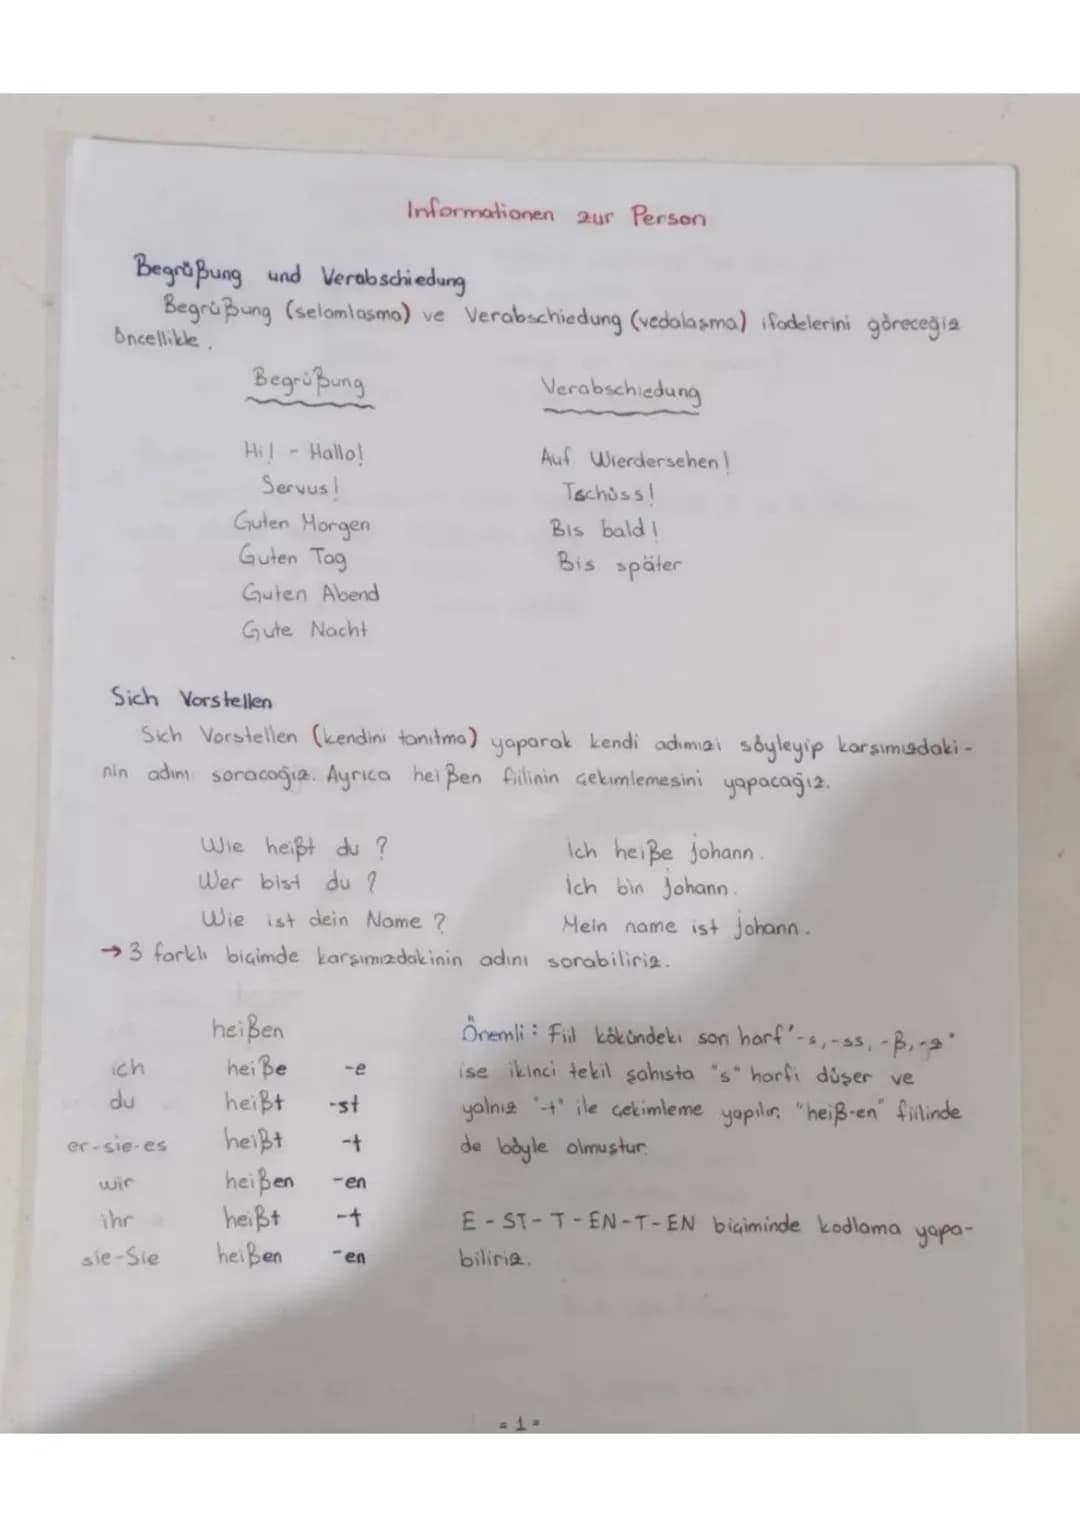 Informationen zur Person
Begrüßung und Verabschiedung
Begrüßung (selamlaşma) ve Verabschiedung (vedalaşma) ifadelerini göreceğiz
öncellikle.
Begrüßung Verabschiedung
Hi! - Hallo! Auf Wierdersehen!
Servus! Tschüss!
Guten Morgen Bis bald!
Guten Tag Bis später
Guten Abend
Gute Nacht
Sich Vorstellen
Sich Vorstellen (kendini tanıtma) yaparak kendi adımızı söyleyip karşımızdaki-
nin adını soracağız. Ayrıca heißen fiilinin çekimlemesini yapacağız.
Wie heißt du? Ich heiße Johann.
Wer bist du? Ich bin Johann.
Wie ist dein Name? Mein name ist Johann.
→ 3 farklı biçimde karşımızdakinin adını sorabiliriz.
heißen
ich heiße -e
du heißt -st
er-sie-es heißt -t
wir heißen -en
ihr heißt -t
sie-Sie heißen -en
Önemli: Fiil kökündeki son harf "-s, -ss, -ß, -z"
ise ikinci tekil şahısta "s" harfi düşer ve
yalnız "-t" ile çekimleme yapılır. "heiß-en" fiilinde
de böyle olmuştur.
E - ST - T - EN - T - EN biçiminde kodlama yapa-
biliriz.
- 1 -